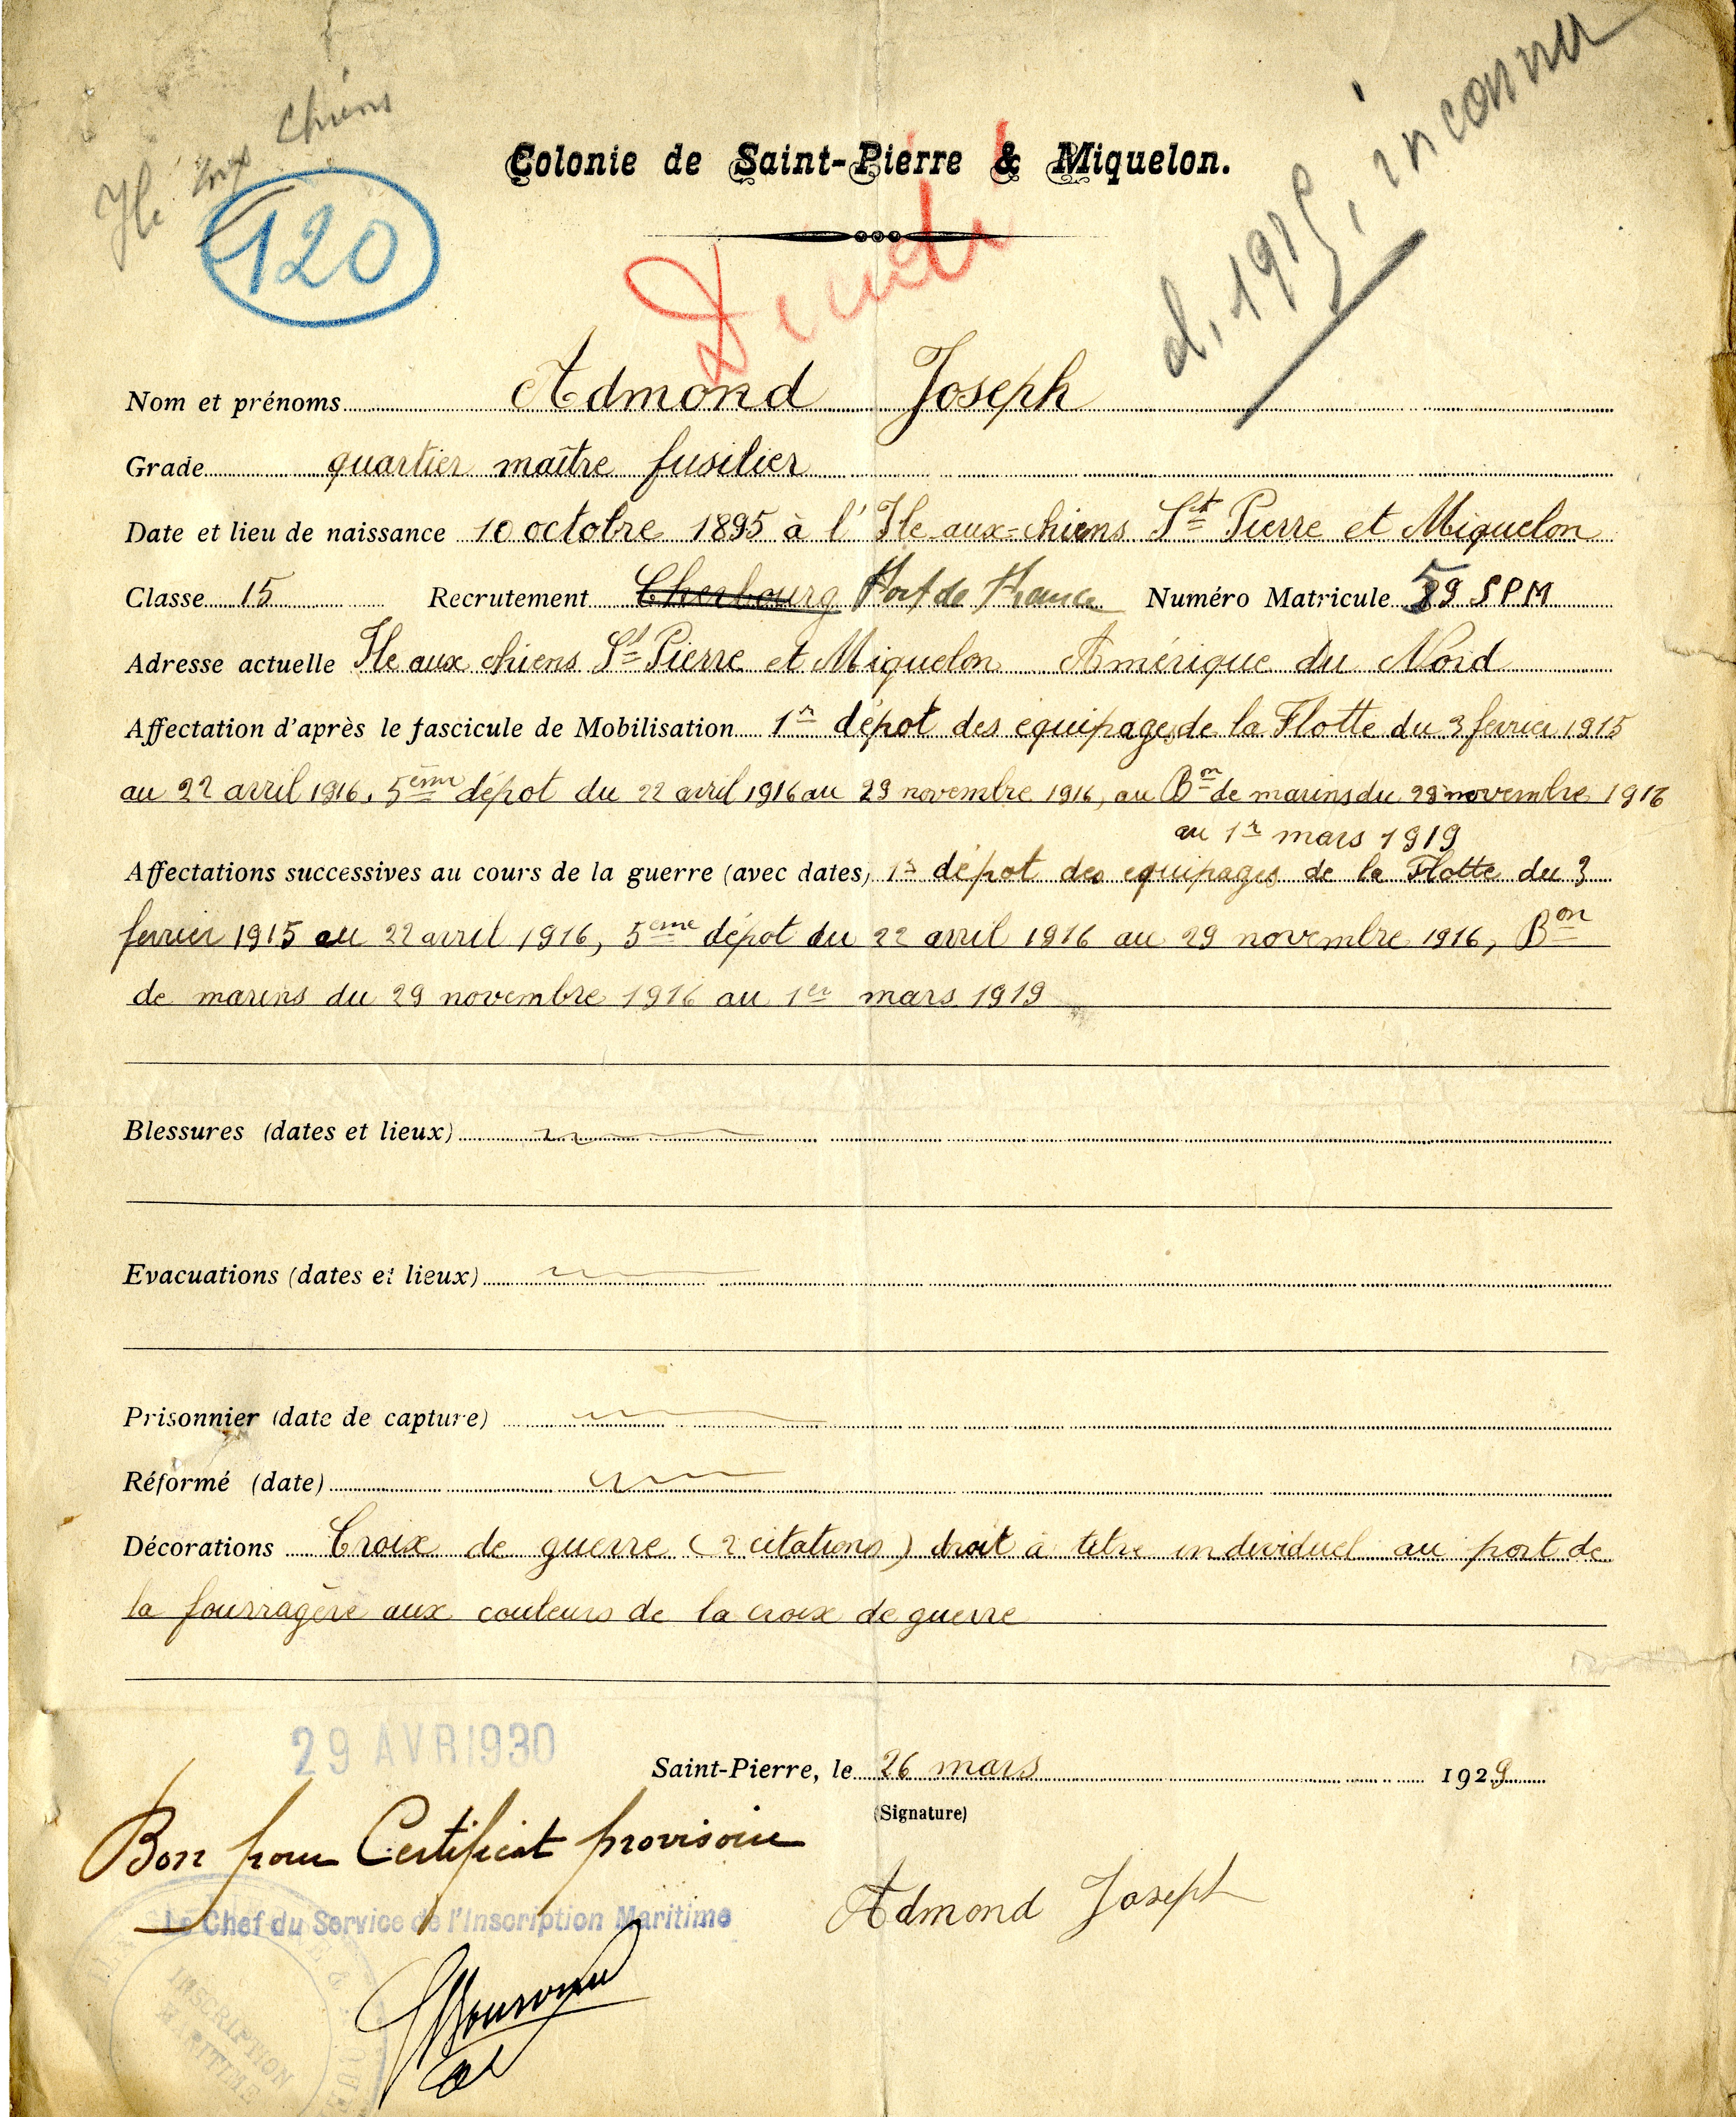 Ile aux Chiens
120
d. 1915, inconnu
Colonie de Saint-Pierre & Miquelon.
Nom et prénoms Admond Joseph
Grade quartier maître fusilier
Date et lieu de naissance 10 octobre 1895 à l'Ile aux-chiens St Pierre et Miquelon
Classe 15 Recrutement Cherbourg Fort de France Numéro Matricule 59 SPM
Adresse actuelle Ile aux chiens St Pierre et Miquelon Amérique du Nord
Affectation d'après le fascicule de Mobilisation 1r dépot des equipages de la Flotte du 3 fevrier 1915
au 22 avril 1916, 5ème dépot du 22 avril 1916 au 29 novembre 1916, au Bon de marins du 29 novembre 1916
au 1r mars 1919
Affectations successives au cours de la guerre (avec dates) 1r dépot des equipages de la Flotte du 3
fevrier 1915 au 22 avril 1916, 5eme dépot du 22 avril 1916 au 29 novembre 1916, Bon
de marins du 29 novembre 1916 au 1er mars 1919
Blessures (dates et lieux)
Evacuations (dates et lieux)
Prisonnier (date de capture)
Réformé (date)
Décorations Croix de guerre (2 citations) droit à titre individuel au port de
la fourragère aux couleurs de la croix de guerre
29 AVR 1930
Saint-Pierre, le 26 mars 1929
(Signature)
Bon pour Certificat provisoire
Admond Joseph
Le Chef du Service de l'Inscription Maritime
INSCRIPTION
MARITIME